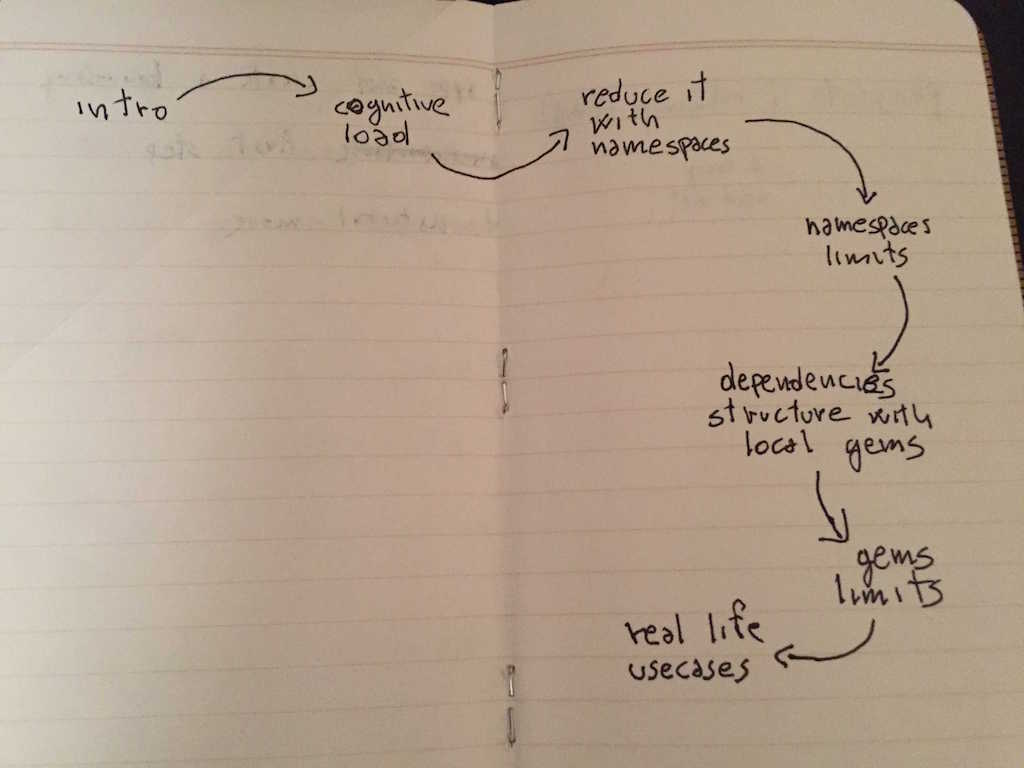 intro
cognitive
load
reduce it
with
namespaces
namespaces
limits
dependencies
structure with
local gems
gems
limits
real life
usecases